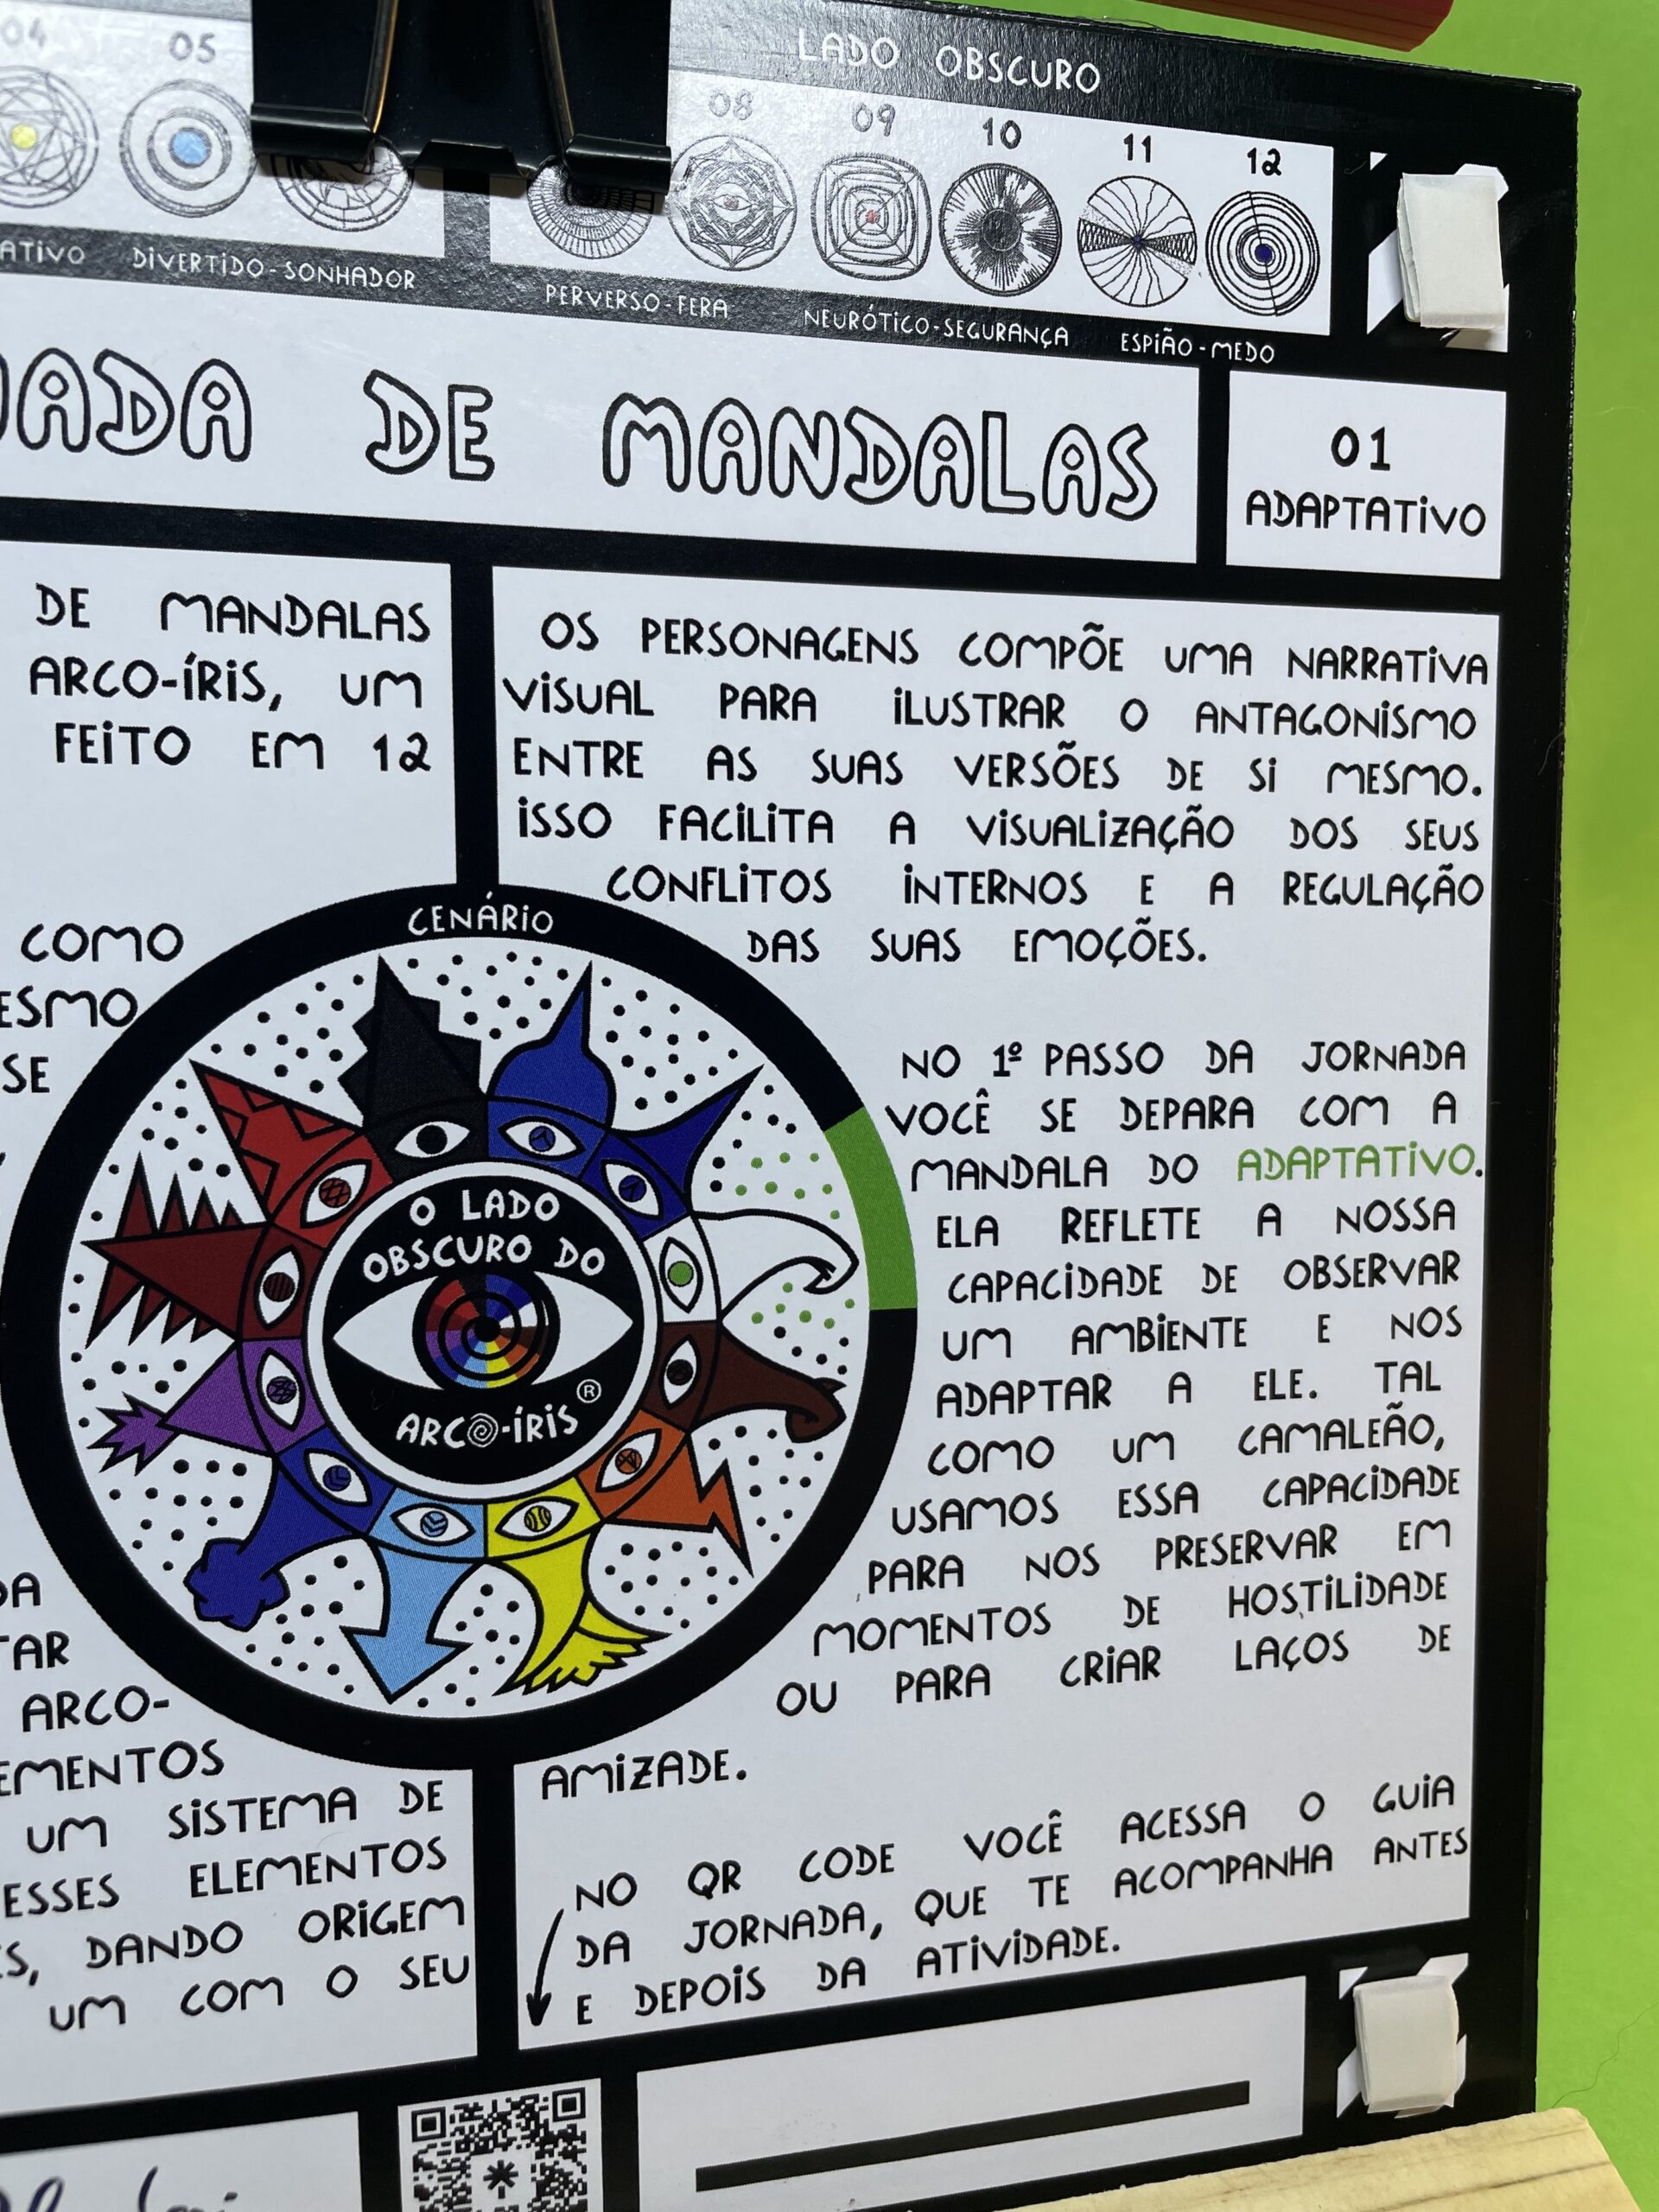 04 05 08 09 10 11 12
LADO OBSCURO
DIVERTIDO-SONHADOR
PERVERSO-FERA
NEURÓTICO-SEGURANÇA
ESPIÃO-MEDO
DE MANDALAS
01
ADAPTATIVO
DE MANDALAS
ARCO-ÍRIS, UM
FEITO EM 12
COMO
SE
ARCO-
UM SISTEMA DE
ESSES ELEMENTOS
DANDO ORIGEM
UM COM O SEU
CENÁRIO
O LADO
OBSCURO DO
ARCO-ÍRIS®
OS PERSONAGENS COMPÕE UMA NARRATIVA
VISUAL PARA ILUSTRAR O ANTAGONISMO
ENTRE AS SUAS VERSÕES DE SI MESMO.
ISSO FACILITA A VISUALIZAÇÃO DOS SEUS
CONFLITOS INTERNOS E A REGULAÇÃO
DAS SUAS EMOÇÕES.
NO 1º PASSO DA JORNADA
VOCÊ SE DEPARA COM A
MANDALA DO ADAPTATIVO.
ELA REFLETE A NOSSA
CAPACIDADE DE OBSERVAR
UM AMBIENTE E NOS
ADAPTAR A ELE. TAL
COMO UM CAMALEÃO,
USAMOS ESSA CAPACIDADE
PARA NOS PRESERVAR EM
MOMENTOS DE HOSTILIDADE
OU PARA CRIAR LAÇOS DE
AMIZADE.
NO QR CODE VOCÊ ACESSA O GUIA
DA JORNADA, QUE TE ACOMPANHA ANTES
E DEPOIS DA ATIVIDADE.